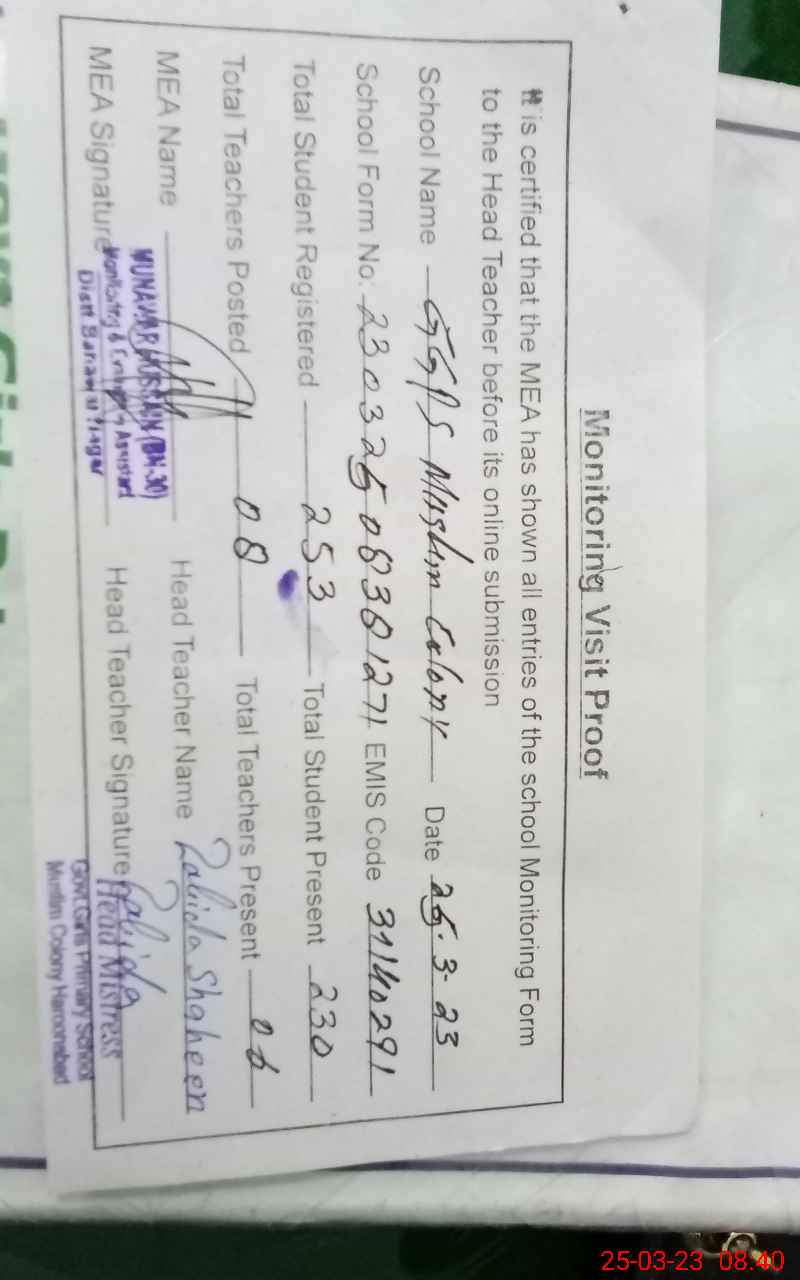 Monitoring Visit Proof
It is certified that the MEA has shown all entries of the school Monitoring Form
to the Head Teacher before its online submission
School Name GGPS Muslim Colony Date 25.3.23
School Form No: 23032508381271 EMIS Code 31140291
Total Student Registered 253 Total Student Present 230
Total Teachers Posted 08 Total Teachers Present
MEA Name Head Teacher Name Zahida Shaheen
MUNAWAR HUSSAIN (BN-30)
MEA Signature Head Teacher Signature Zahida
Monitoring & Assistant
Head Mistress
Distt
Govt. Girls Primary School
Muslim Colony Haroonabad
25-03-23 08:40